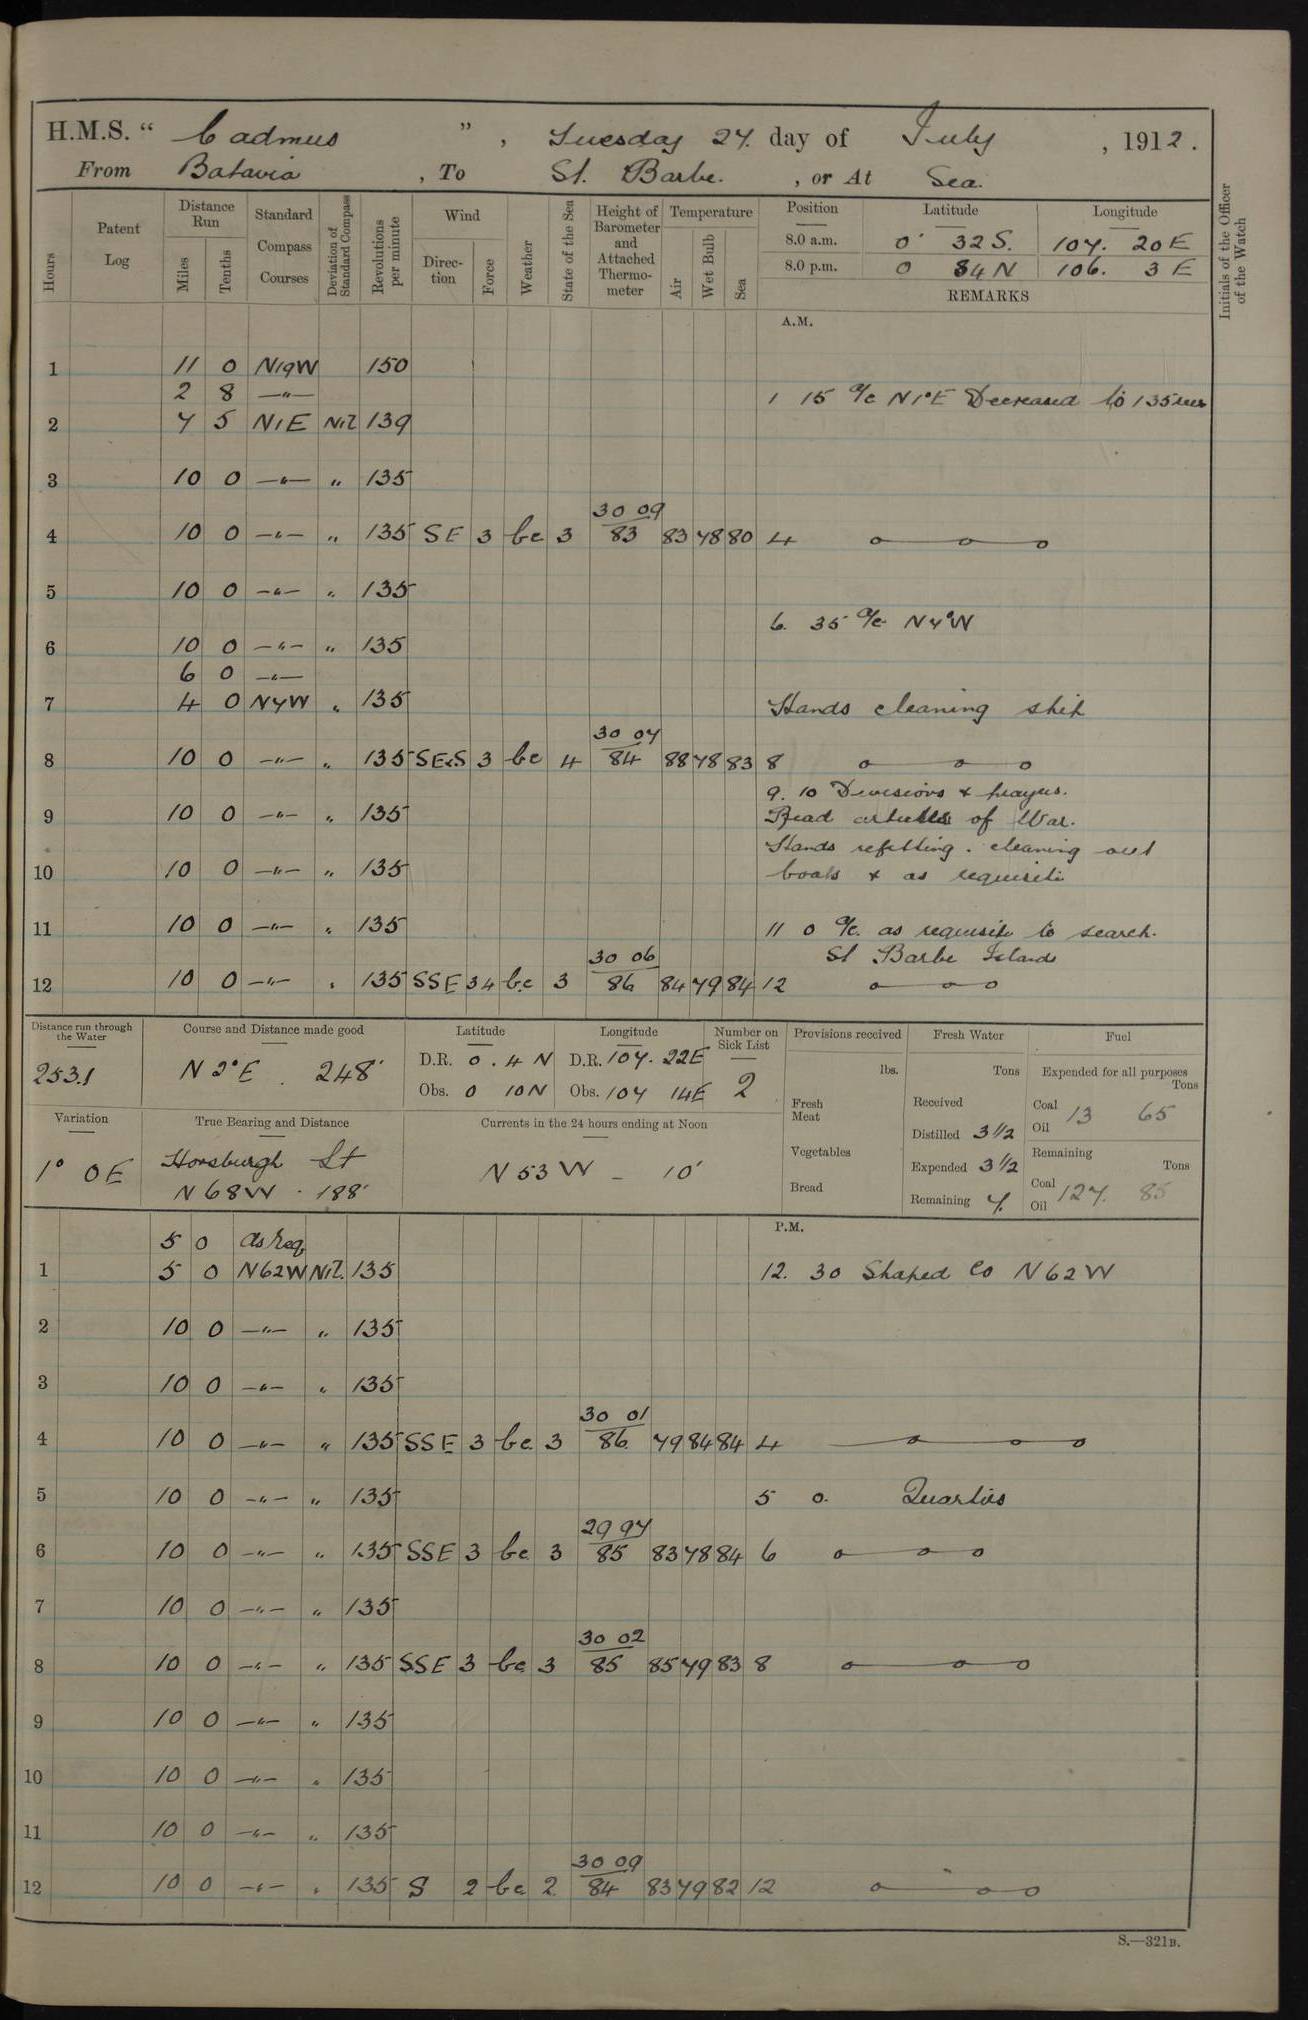 H.M.S. " Cadmus ", Tuesday 27. day of July , 1912.
From Batavia , To St. Barbe. , or At Sea.
Hours
Patent Log
Distance Run
Miles
Tenths
Standard Compass Courses
Deviation of Standard Compass
Revolutions per minute
Wind
Direction
Force
Weather
State of the Sea
Height of Barometer and Attached Thermometer
Temperature
Air
Wet Bulb
Sea
Position Latitude Longitude
8.0 a.m. 0° 32 S. 107. 20 E
8.0 p.m. 0 34 N 106. 3 E
REMARKS
Initials of the Officer of the Watch
A.M.
1 11 0 N19W 150
2 8 —"—
1 15 a/c N1°E Decreased to 135 revs
2 7 5 N1E Nil 139
3 10 0 —"— " 135
30 09
4 10 0 —"— " 135 SE 3 bc 3 83 83 78 80 4
5 10 0 —"— " 135
6. 35 a/c N7°W
6 10 0 —"— " 135
6 0 —"—
7 4 0 N7W " 135 Hands cleaning ship
30 07
8 10 0 —"— " 135 SExS 3 bc 4 84 88 78 83 8
9. 10 Divisions & prayers.
9 10 0 —"— " 135 Read articles of War.
Hands refitting. cleaning out
10 10 0 —"— " 135 boats & as requisite
11 10 0 —"— " 135 11 0 a/c. as requisite to search.
30 06 St Barbe Islands
12 10 0 —"— " 135 SSE 34 b.c 3 86 84 79 84 12
Distance run through the Water
253.1
Course and Distance made good
N 2°E . 248'
Latitude
D.R. 0. 4 N
Obs. 0 10N
Longitude
D.R. 107. 22E
Obs. 107 14E
Number on Sick List
2
Provisions received
lbs.
Fresh Meat
Vegetables
Bread
Fresh Water
Tons
Received
Distilled 3 1/2
Expended 3 1/2
Remaining 7.
Fuel
Expended for all purposes
Tons
Coal
Oil 13 65
Remaining
Tons
Coal
Oil 127. 85
Variation
1° 0E
True Bearing and Distance
Horsburgh Lt
N 68W . 188'
Currents in the 24 hours ending at Noon
N 53 W - 10'
P.M.
5 0 as req
1 5 0 N62W Nil. 135 12. 30 Shaped Co N62W
2 10 0 —"— " 135
3 10 0 —"— " 135
30 01
4 10 0 —"— " 135 SSE 3 bc. 3 86. 79 84 84 4
5 10 0 —"— " 135 5 0. Quarters
29 97
6 10 0 —"— " 135 SSE 3 bc. 3 85 83 78 84 6
7 10 0 —"— " 135
30 02
8 10 0 —"— " 135 SSE 3 bc 3 85 85 79 83 8
9 10 0 —"— " 135
10 10 0 —"— " 135
11 10 0 —"— " 135
30 09
12 10 0 —"— " 135 S 2 bc 2 84 83 79 82 12
S.—321B.